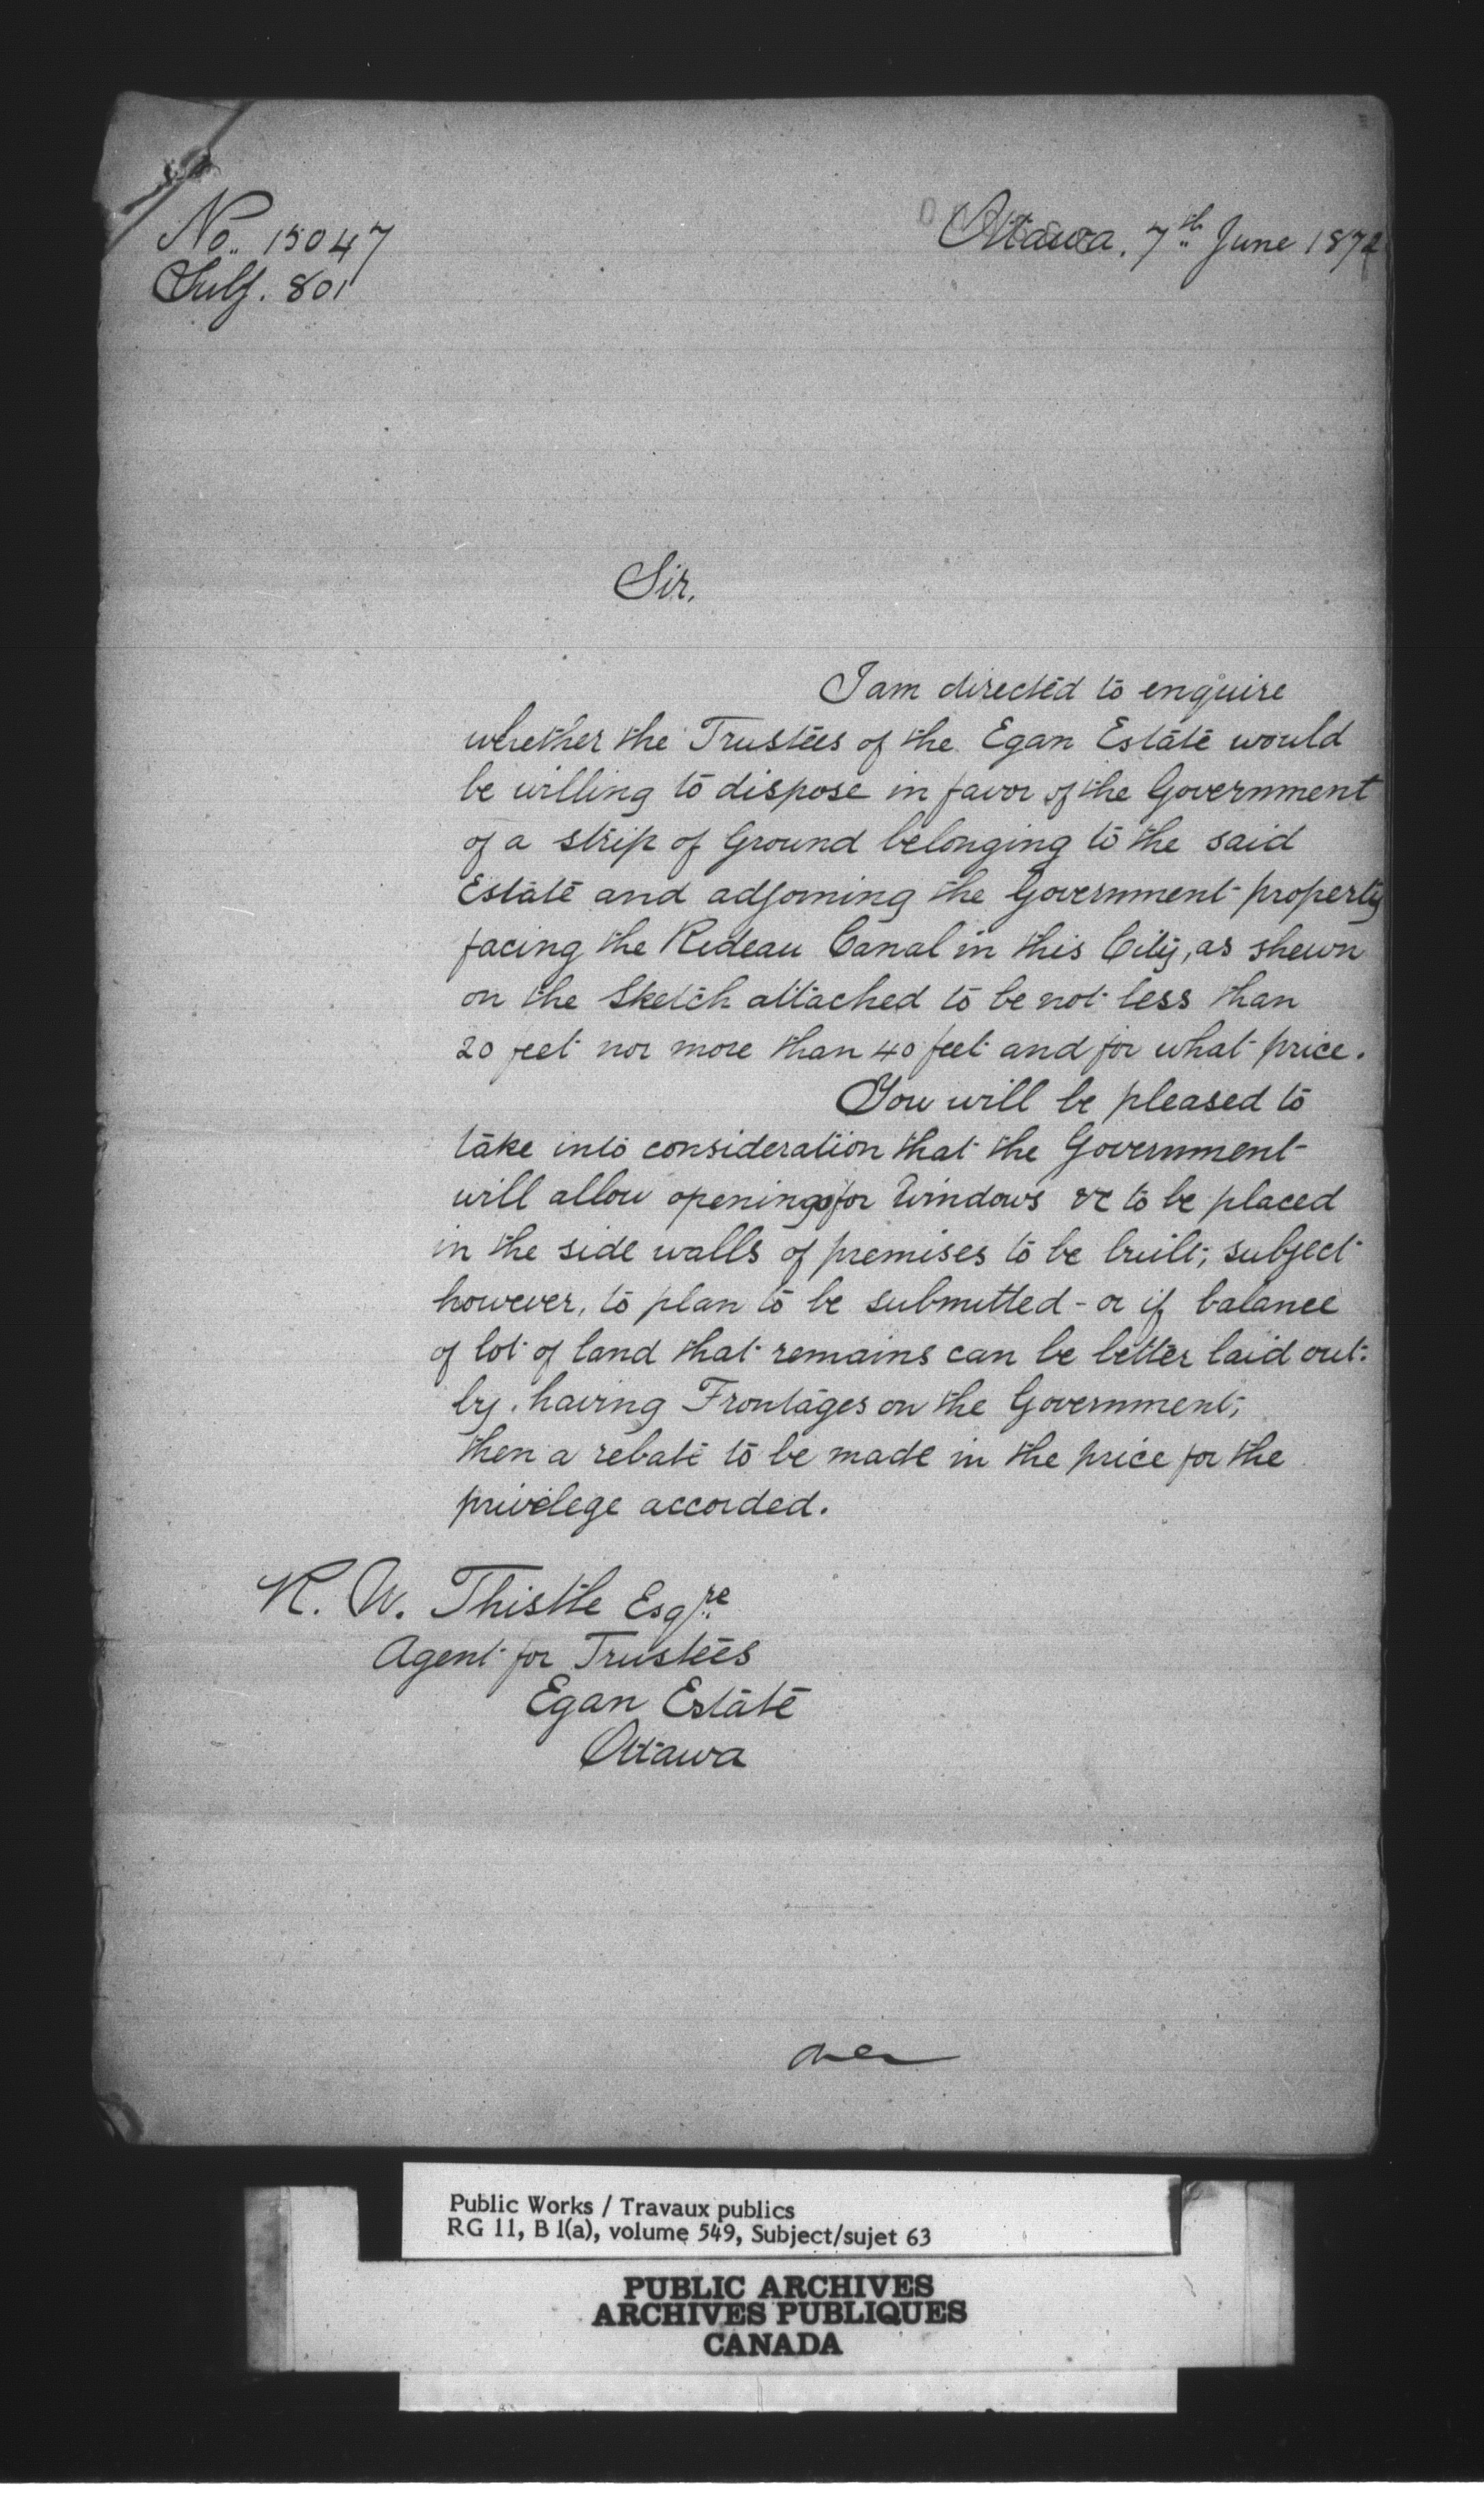 No. 15047
Subj. 801
Ottawa, 7th June 1872
Sir,
I am directed to enquire
whether the Trustees of the Egan Estate would
be willing to dispose in favor of the Government
of a strip of Ground belonging to the said
Estate and adjoining the Government property
facing the Rideau Canal in this City, as shewn
on the Sketch attached to be not less than
20 feet nor more than 40 feet and for what price.
You will be pleased to
take into consideration that the Government
will allow openings for Windows &c to be placed
in the side walls of premises to be built, subject
however, to plan to be submitted - or if balance
of lot of land that remains can be better laid out
by having Frontages on the Government,
then a rebate to be made in the price for the
privilege accorded.
R. W. Thistle Esqre
Agent for Trustees
Egan Estate
Ottawa
over
Public Works / Travaux publics
RG 11, B 1(a), volume 549, Subject/sujet 63
PUBLIC ARCHIVES
ARCHIVES PUBLIQUES
CANADA